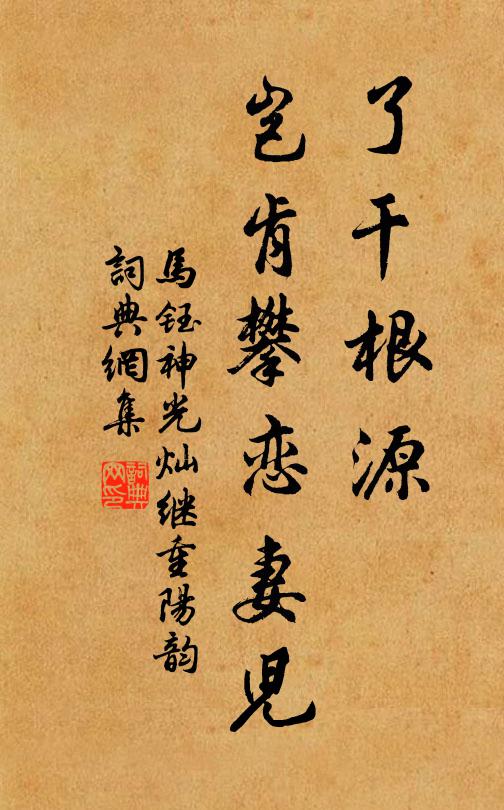 了干根源
岂肯攀恋妻児
馬鈺神光灿继重陽韵
詞典網集
詞典網印